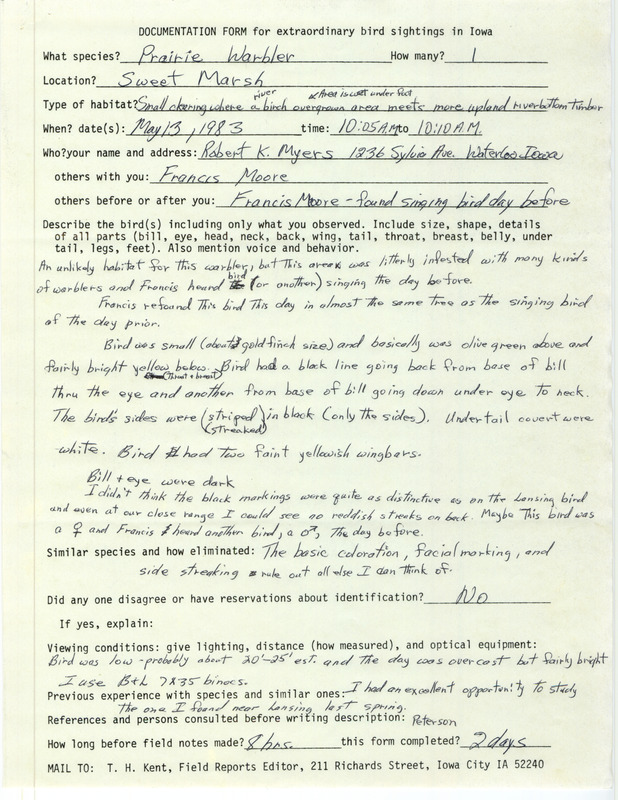 DOCUMENTATION FORM for extraordinary bird sightings in Iowa
What species? Prairie Warbler How many? 1
Location? Sweet Marsh
river Area is wet under foot
Type of habitat? Small clearing where a birch overgrown area meets more upland riverbottom timber
When? date(s): May 13, 1983 time: 10:05 A.M. to 10:10 A.M.
Who? your name and address: Robert K. Myers 1236 Sylvia Ave. Waterloo Iowa
others with you: Francis Moore
others before or after you: Francis Moore - found singing bird day before
Describe the bird(s) including only what you observed. Include size, shape, details
of all parts (bill, eye, head, neck, back, wing, tail, throat, breast, belly, under
tail, legs, feet). Also mention voice and behavior.
An unlikely habitat for this warbler, but this area was litterly infested with many kinds
of warblers and Francis heard bird (or another) singing the day before.
Francis refound this bird this day in almost the same tree as the singing bird
of the day prior.
Bird was small (about goldfinch size) and basically was olive green above and
fairly bright yellow below. (throat + breast) Bird had a black line going back from base of bill
thru the eye and another from base of bill going down under eye to neck.
The bird's sides were (striped) in black (only the sides). Undertail covert were
(streaked)
white. Bird had two faint yellowish wingbars.
Bill + eye were dark
I didn't think the black markings were quite as distinctive as on the Lansing bird
and even at our close range I could see no reddish streaks on back. Maybe this bird was
a ♀ and Francis heard another bird, a ♂, the day before.
Similar species and how eliminated: The basic coloration, facial marking, and
side streaking rule out all else I can think of.
Did any one disagree or have reservations about identification? No
If yes, explain:
Viewing conditions: give lighting, distance (how measured), and optical equipment:
Bird was low - probably about 20'-25' est. and the day was overcast but fairly bright
I use B+L 7x35 binocs.
Previous experience with species and similar ones: I had an excellent opportunity to study
the one I found near Lansing last spring.
References and persons consulted before writing description: Peterson
How long before field notes made? 8 hrs. this form completed? 2 days
MAIL TO: T. H. Kent, Field Reports Editor, 211 Richards Street, Iowa City IA 52240